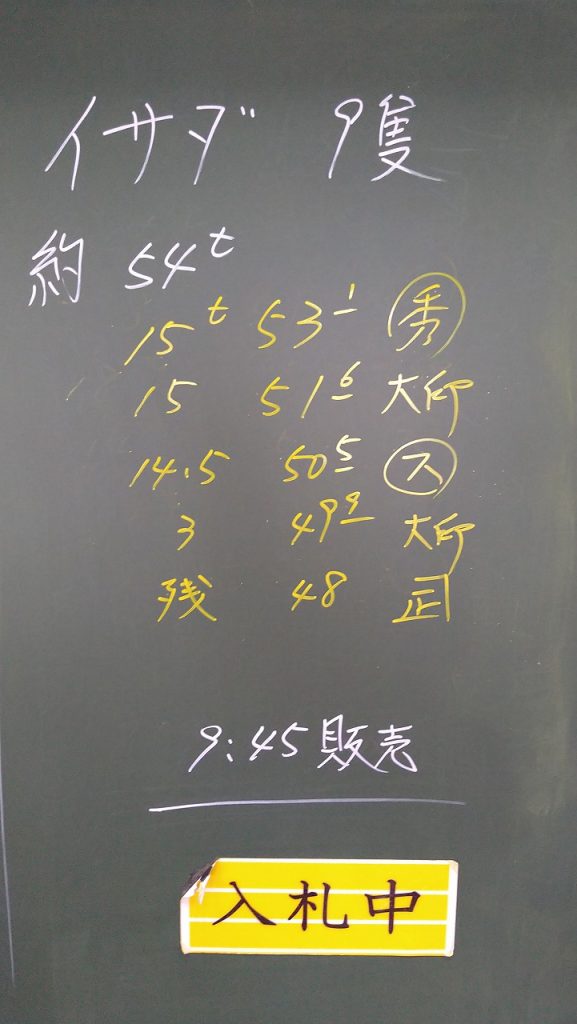 イサダ 9隻
約 54t
15t 53 1 秀
15 51 6 大印
14.5 50 5 ス
3 49 9 大印
残 48
9:45販売
入札中